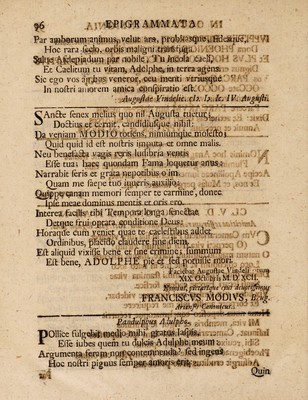 96 EPIGRAMMATA
Par amborum animus, velut ars, probitasque,
Hoc rara seclo, orbis maligni
Salve Asclepiadum par nobile, Tu incola coeli,
Et Caelitum tu vitam, Adelphe, in terra agens
Sic ego vos ambos veneror, ceu menti veriusque
In nostri amorem amica conspiratio est.
Augustae Vindelic. IV. Augusti.
SAncte senex melius quo nil Augusta tuetur
Doctius et cernit, candidiusque nihil:
Da veniam MODIO totiens, nimiumque molesto
Quid quid id est nostris imputa et omne malis.
Neu benefacta vagis rere ludibria ventis
Esse tua: haec quondam Fama loquetur anus
Narrabit seris et grata nepotibus olim
Quam me saepe tuo juveris auxilio;
Quippe tuum memori semper te carmine, donec
Ipse meae dominus mentis et oris ero.
Interea facilis tibi Tempora longa senectae
Detque frui optata conditione Deus:
Horaque cum veniet quae te caelestibus addet
Ordinibus, placido claudere fine diem,
Est aliquid vixisse bene et sine crimine; summum
Est bene, ADOLPHE pie et sed potuisse mori
Faciebat Augustae Vindel.
XIX Octobris M D XCII.
FRANCISCVS MODIVS, Brug.
Pandulphus Adulphe.
POllice fulgebit modio mihi, gratus Iaspis,
Esse jubes quem tu dulcis Adulphe meum
Argumenta feram non contemnenda sed ingens
Hoc nostri pignus semper amoris erit,
Quin